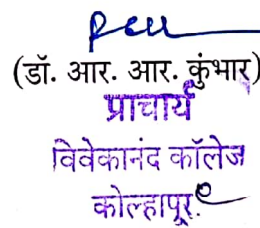 (डॉ. आर. आर. कुंभार)
प्राचार्य
विवेकानंद कॉलेज
कोल्हापूर.